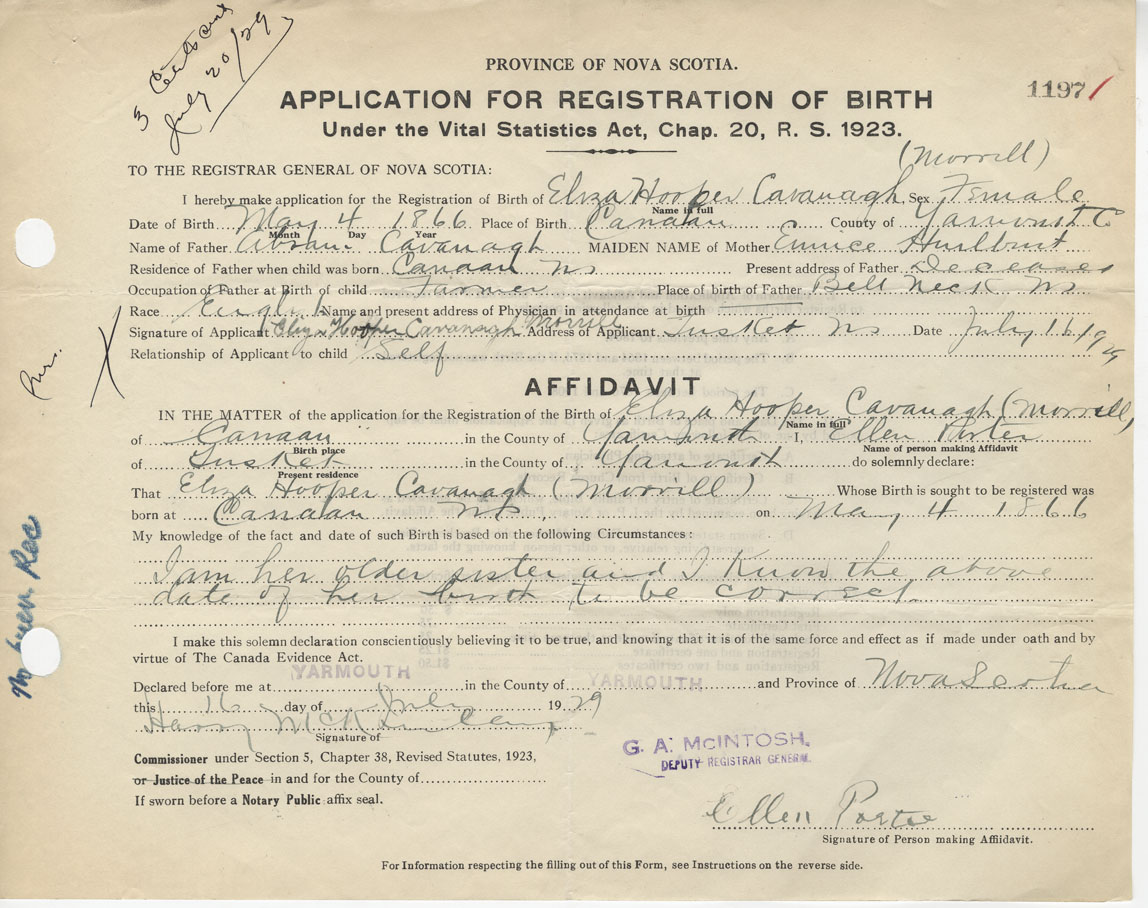 3 Certs sent
July 20/29
PROVINCE OF NOVA SCOTIA.
1197
APPLICATION FOR REGISTRATION OF BIRTH
Under the Vital Statistics Act, Chap. 20, R. S. 1923.
(Morrill)
TO THE REGISTRAR GENERAL OF NOVA SCOTIA:
I hereby make application for the Registration of Birth of Eliza Hooper Cavanagh Sex Female
Name in full
Date of Birth May 4 1866 Place of Birth Canaan County of Yarmouth Co
Month Day Year
Name of Father Absam Cavanagh MAIDEN NAME of Mother Eunice Hurlburt
Residence of Father when child was born Canaan NS Present address of Father Deceased
Occupation of Father at Birth of child Farmer Place of birth of Father Bell Neck NS
Race English Name and present address of Physician in attendance at birth
Signature of Applicant Eliza Hooper Cavanagh Morrill Address of Applicant Tusket NS Date July 16 1929
Relationship of Applicant to child Self
Mrs.
AFFIDAVIT
IN THE MATTER of the application for the Registration of the Birth of Eliza Hooper Cavanagh (Morrill)
Name in full
of Canaan in the County of Yarmouth I, Ellen Porter
Birth place Name of person making Affidavit
of Tusket in the County of Yarmouth do solemnly declare:
Present residence
That Eliza Hooper Cavanagh (Morrill) Whose Birth is sought to be registered was
born at Canaan NS on May 4 1866
My knowledge of the fact and date of such Birth is based on the following Circumstances:
I am her older sister and I know the above
date of her birth to be correct
I make this solemn declaration conscientiously believing it to be true, and knowing that it is of the same force and effect as if made under oath and by
virtue of The Canada Evidence Act.
Declared before me at YARMOUTH in the County of YARMOUTH and Province of Nova Scotia
this 16 day of July 1929
Harry
Signature of
Commissioner under Section 5, Chapter 38, Revised Statutes, 1923,
or Justice of the Peace in and for the County of
If sworn before a Notary Public affix seal.
G. A. McINTOSH.
DEPUTY REGISTRAR GENERAL
Ellen Porter
Signature of Person making Affidavit.
For Information respecting the filling out of this Form, see Instructions on the reverse side.